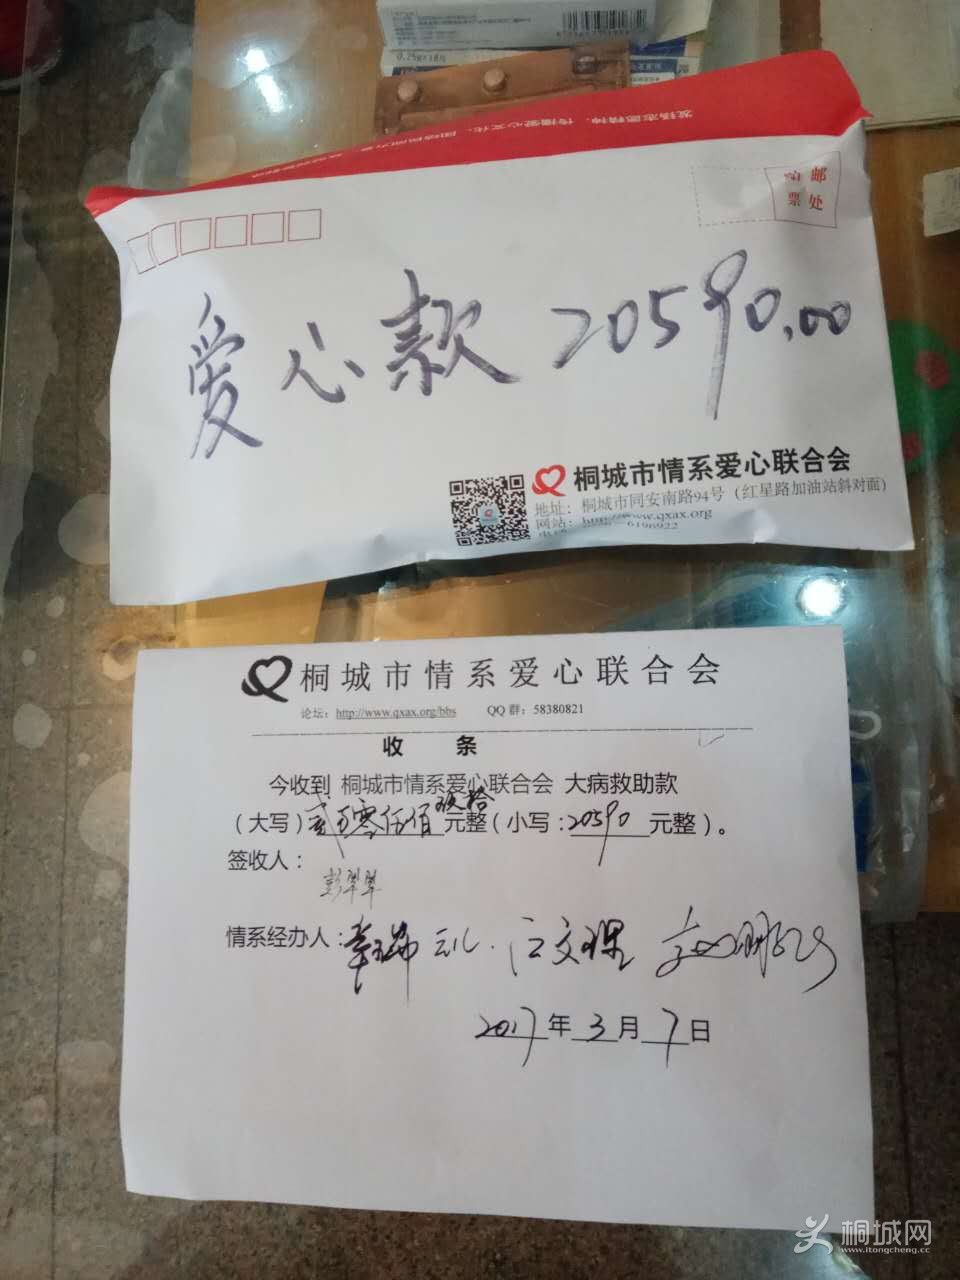 0.25g×18片
发扬志愿精神，传播爱心文化，
邮
票 处
爱心款 20590.00
桐城市情系爱心联合会
地址：桐城市同安南路94号（红星路加油站斜对面）
网站：http://www.qxax.org
6196922
桐城市情系爱心联合会
论坛：http://www.qxax.org/bbs QQ 群：58380821
收 条
今收到 桐城市情系爱心联合会 大病救助款
玖拾
（大写）贰万零伍佰 元整（小写：20590 元整）。
签收人：
彭翠翠
情系经办人：
2017年3月7日
桐城网
www.itongcheng.cc